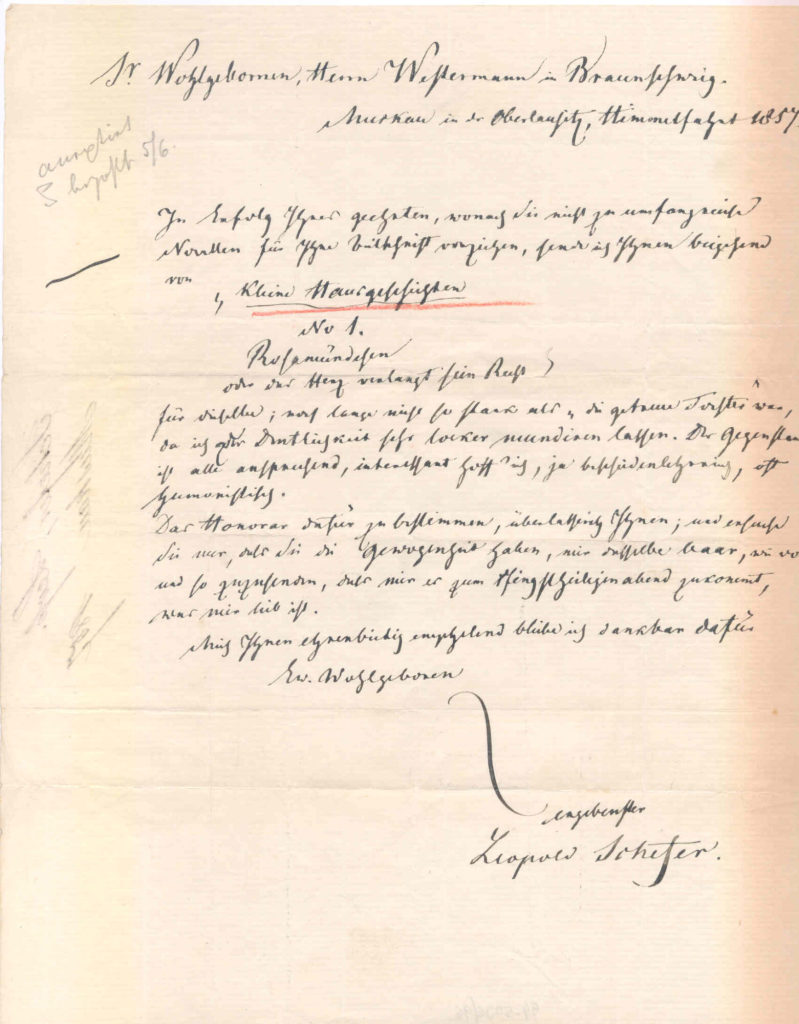 Sr. Wohlgebornen, Herrn Westermann in Braunschweig.
Muskau in der Oberlausitz, Himmelfahrt 1857
acceptirt
bezahlt 5/6.
In Erfolg Ihres geehrten, wonach Sie nicht zu umfangreiche
Novellen für Ihre vorziehen, sende ich Ihnen beigehend
von
„Kleine Hausgeschichten
No 1.
Rosamündchen
oder das Herz verlangt sein Recht
für dieselbe; noch lange nicht so stark als „die getreue war,
da ich der Deutlichkeit sehr locker mundiren lassen. Der Gegenstan
ist alle ansprechend, interessant hoff' ich, ja bescheidenlehrreich, oft
humoristisch.
Das Honorar dafür zu bestimmen, überlasse ich Ihnen; und ersuche
Sie nur, daß Sie die Gewogenheit haben, mir dasselbe baar, wie vo
und so zuzusenden, daß mir es zum Pfingstheiligenabend zukommt,
was mir lieb ist.
Mich Ihnen ehrerbietig empfehlend bleibe ich dankbar dafür
Ew. Wohlgeboren
ergebenster
Leopold Schefer.